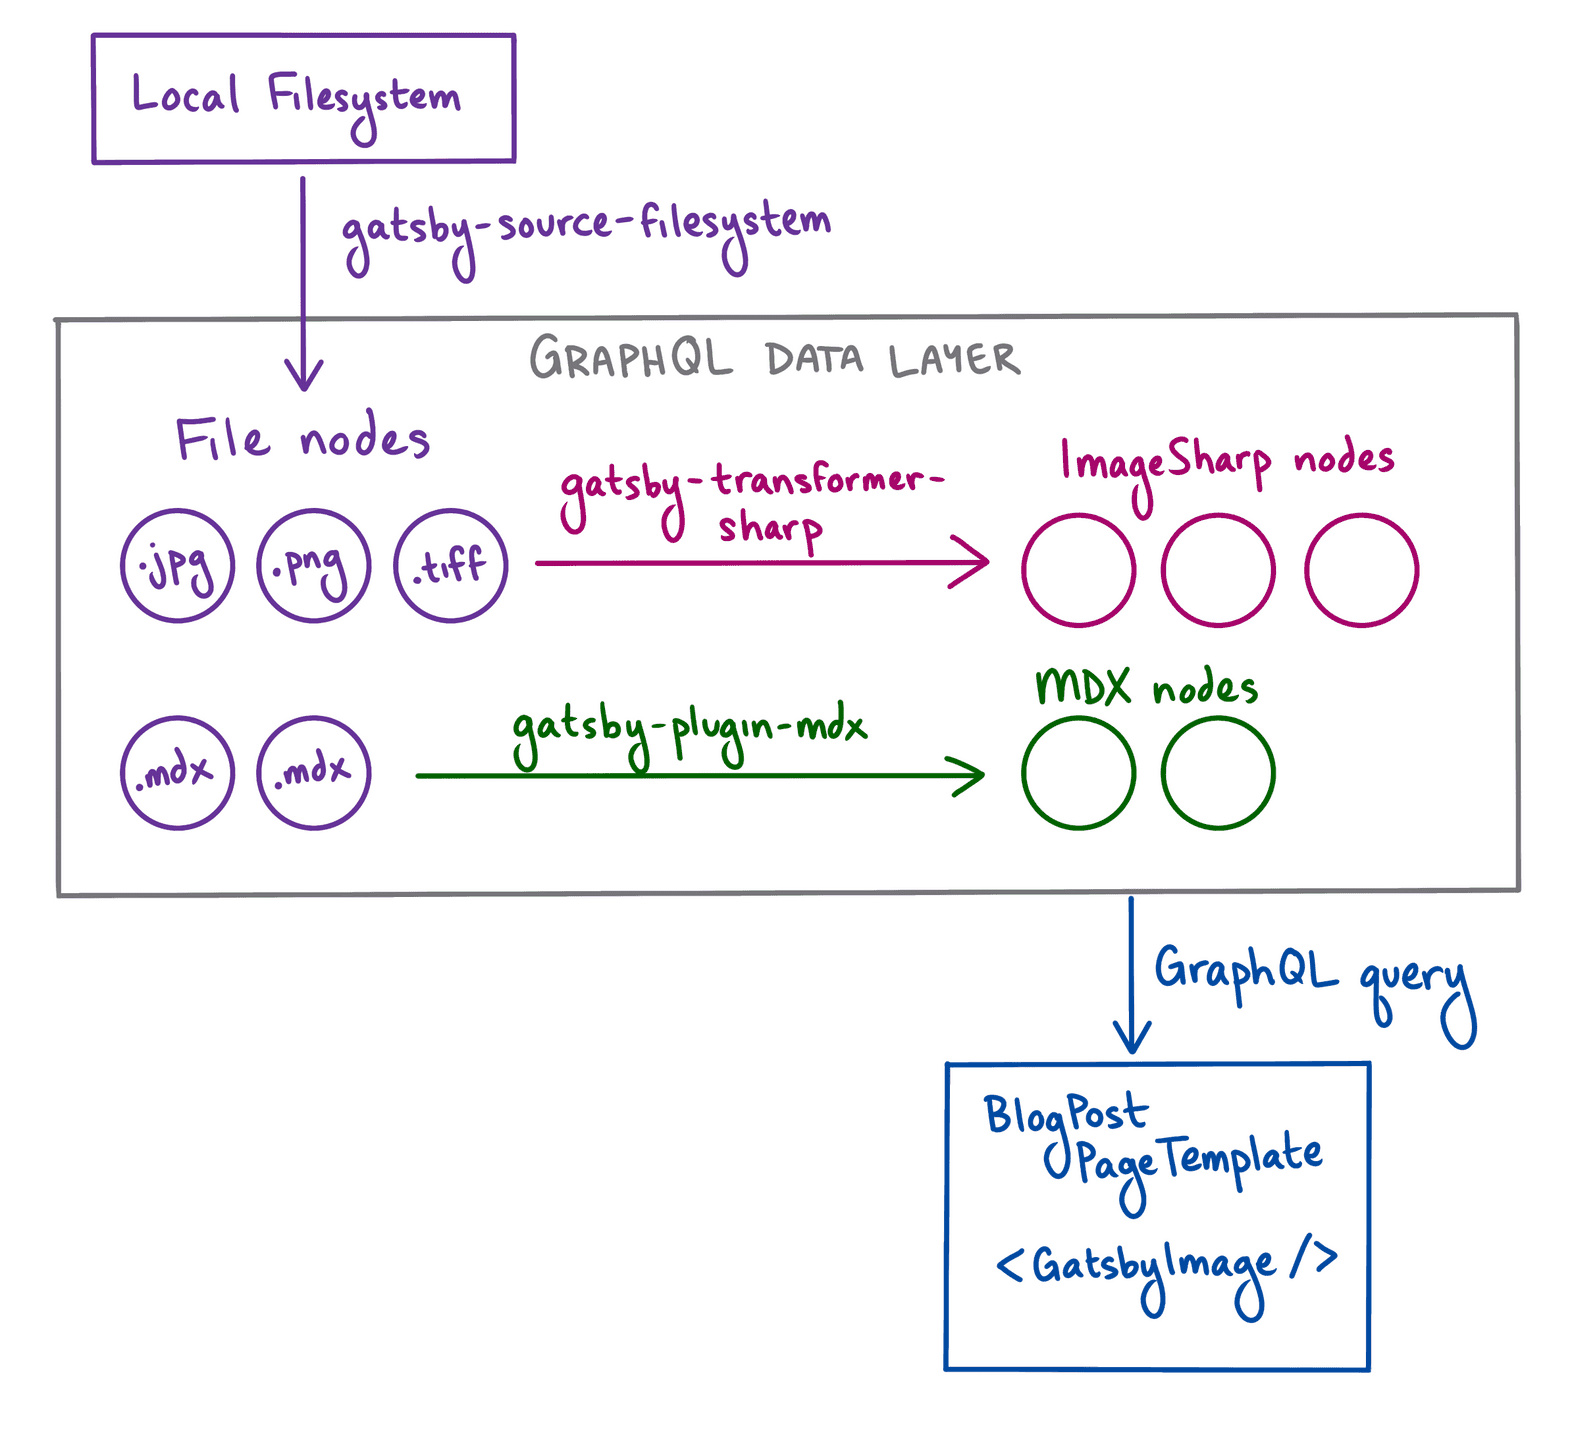 Local Filesystem
gatsby-source-filesystem
GRAPHQL DATA LAYER
File nodes
gatsby-transformer-
sharp
ImageSharp nodes
.jpg
.png
.tiff
MDX nodes
gatsby-plugin-mdx
.mdx
.mdx
GraphQL query
BlogPost
PageTemplate
<GatsbyImage />